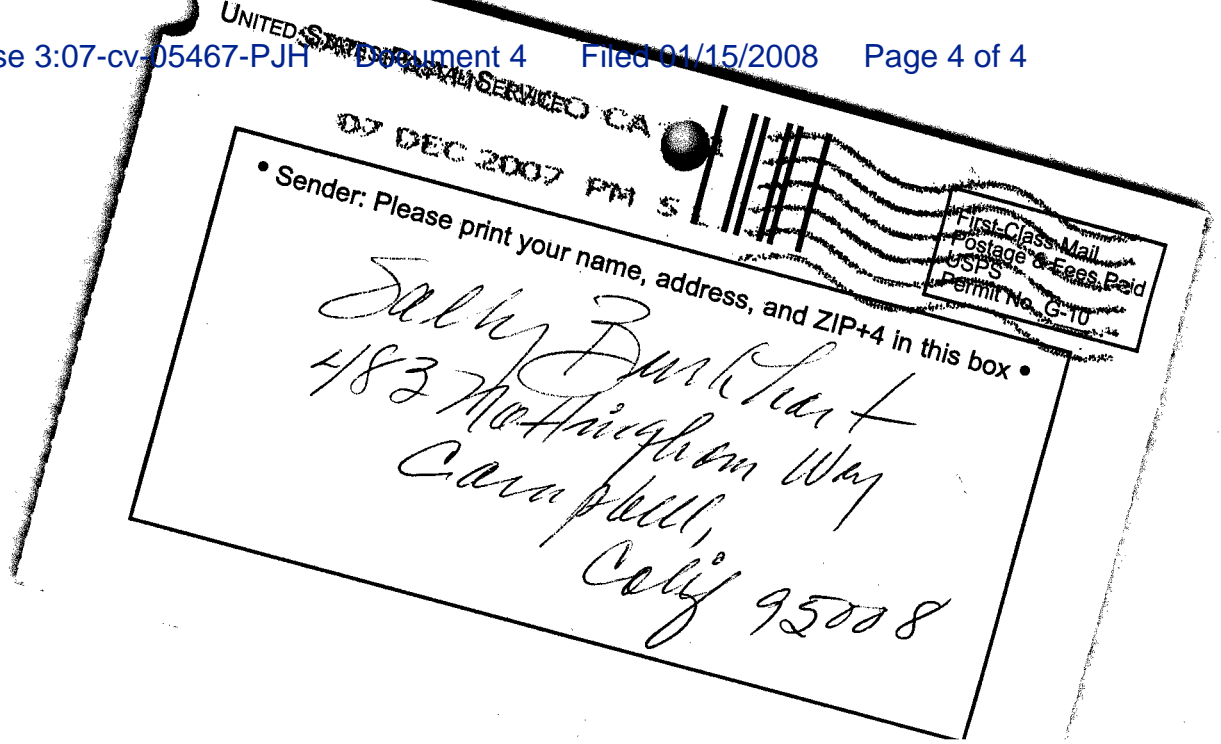 se 3:07-cv-05467-PJH Document 4 Filed 01/15/2008 Page 4 of 4
UNITED STATES POSTAL SERVICE
CA
07 DEC 2007 PM 5
First-Class Mail
Postage & Fees Paid
USPS
Permit No. G-10
• Sender: Please print your name, address, and ZIP+4 in this box •
Sally Burkhart
483 Nottingham Way
Campbell,
Calif 95008